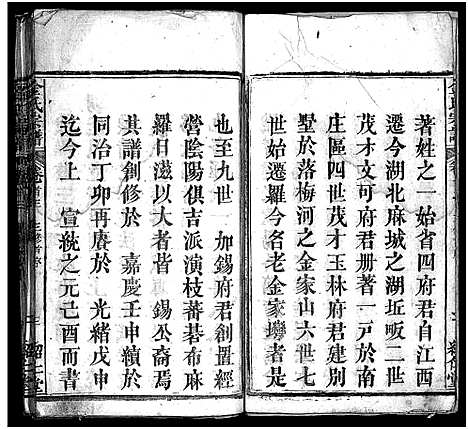 著姓之一始省四府君自江西
遷今湖北麻城之湖坵畈二世
茂才文可府君册著一戶於南
庄區四世茂才玉林府君建別
墅於落梅河之金家山六世七
世始遷羅今名老金家塆者是
也至九世 加錫府君創置經
營陰陽俱吉派演枝蕃碁布麻
羅日滋以大者皆 錫公裔焉
其譜創修於 嘉慶壬申續於
同治丁卯再賡於 光緒戊申
迄今上 宣統之元己酉而書
金氏宗譜